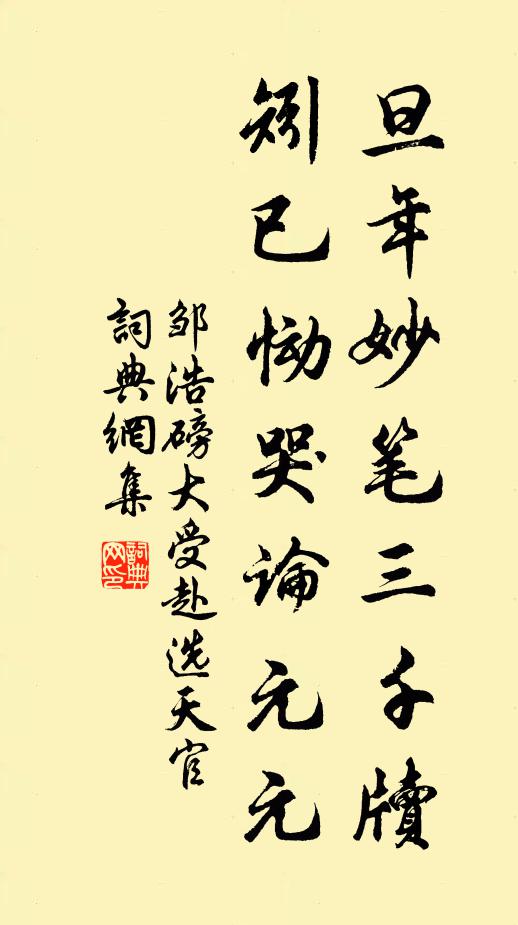 旦年妙笔三千牍
矧已恸哭论元元
邹浩磅大受赴选天官
词典網集
詞典网印